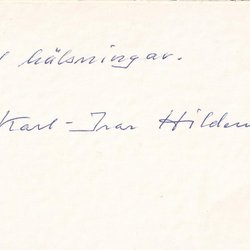 hälsningar.
Karl-Ivar Hilden